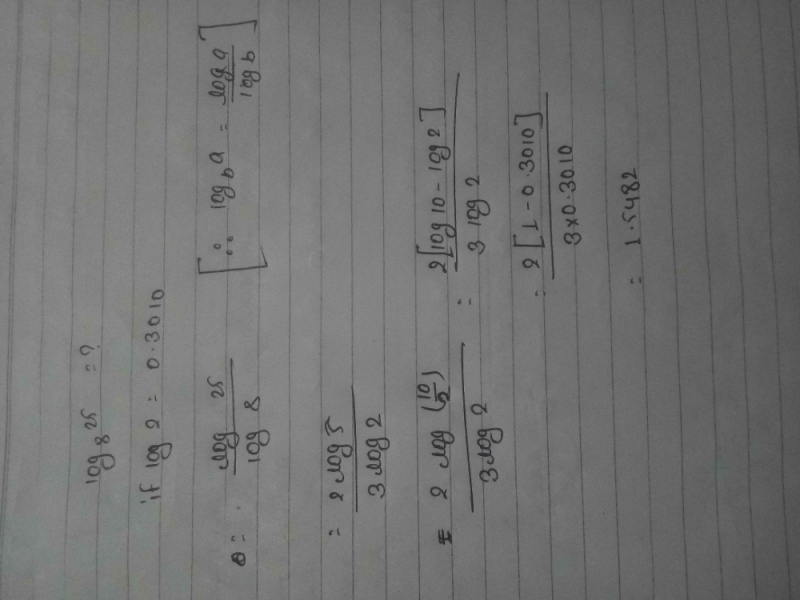 log₈25 = ?
if log 2 = 0.3010
= log 25 / log 8 [∵ log_b a = log a / log b]
= 2 log 5 / 3 log 2
= 2 log (10/2) / 3 log 2 = 2[log 10 - log 2] / 3 log 2
= 2[1 - 0.3010] / 3×0.3010
= 1.5482